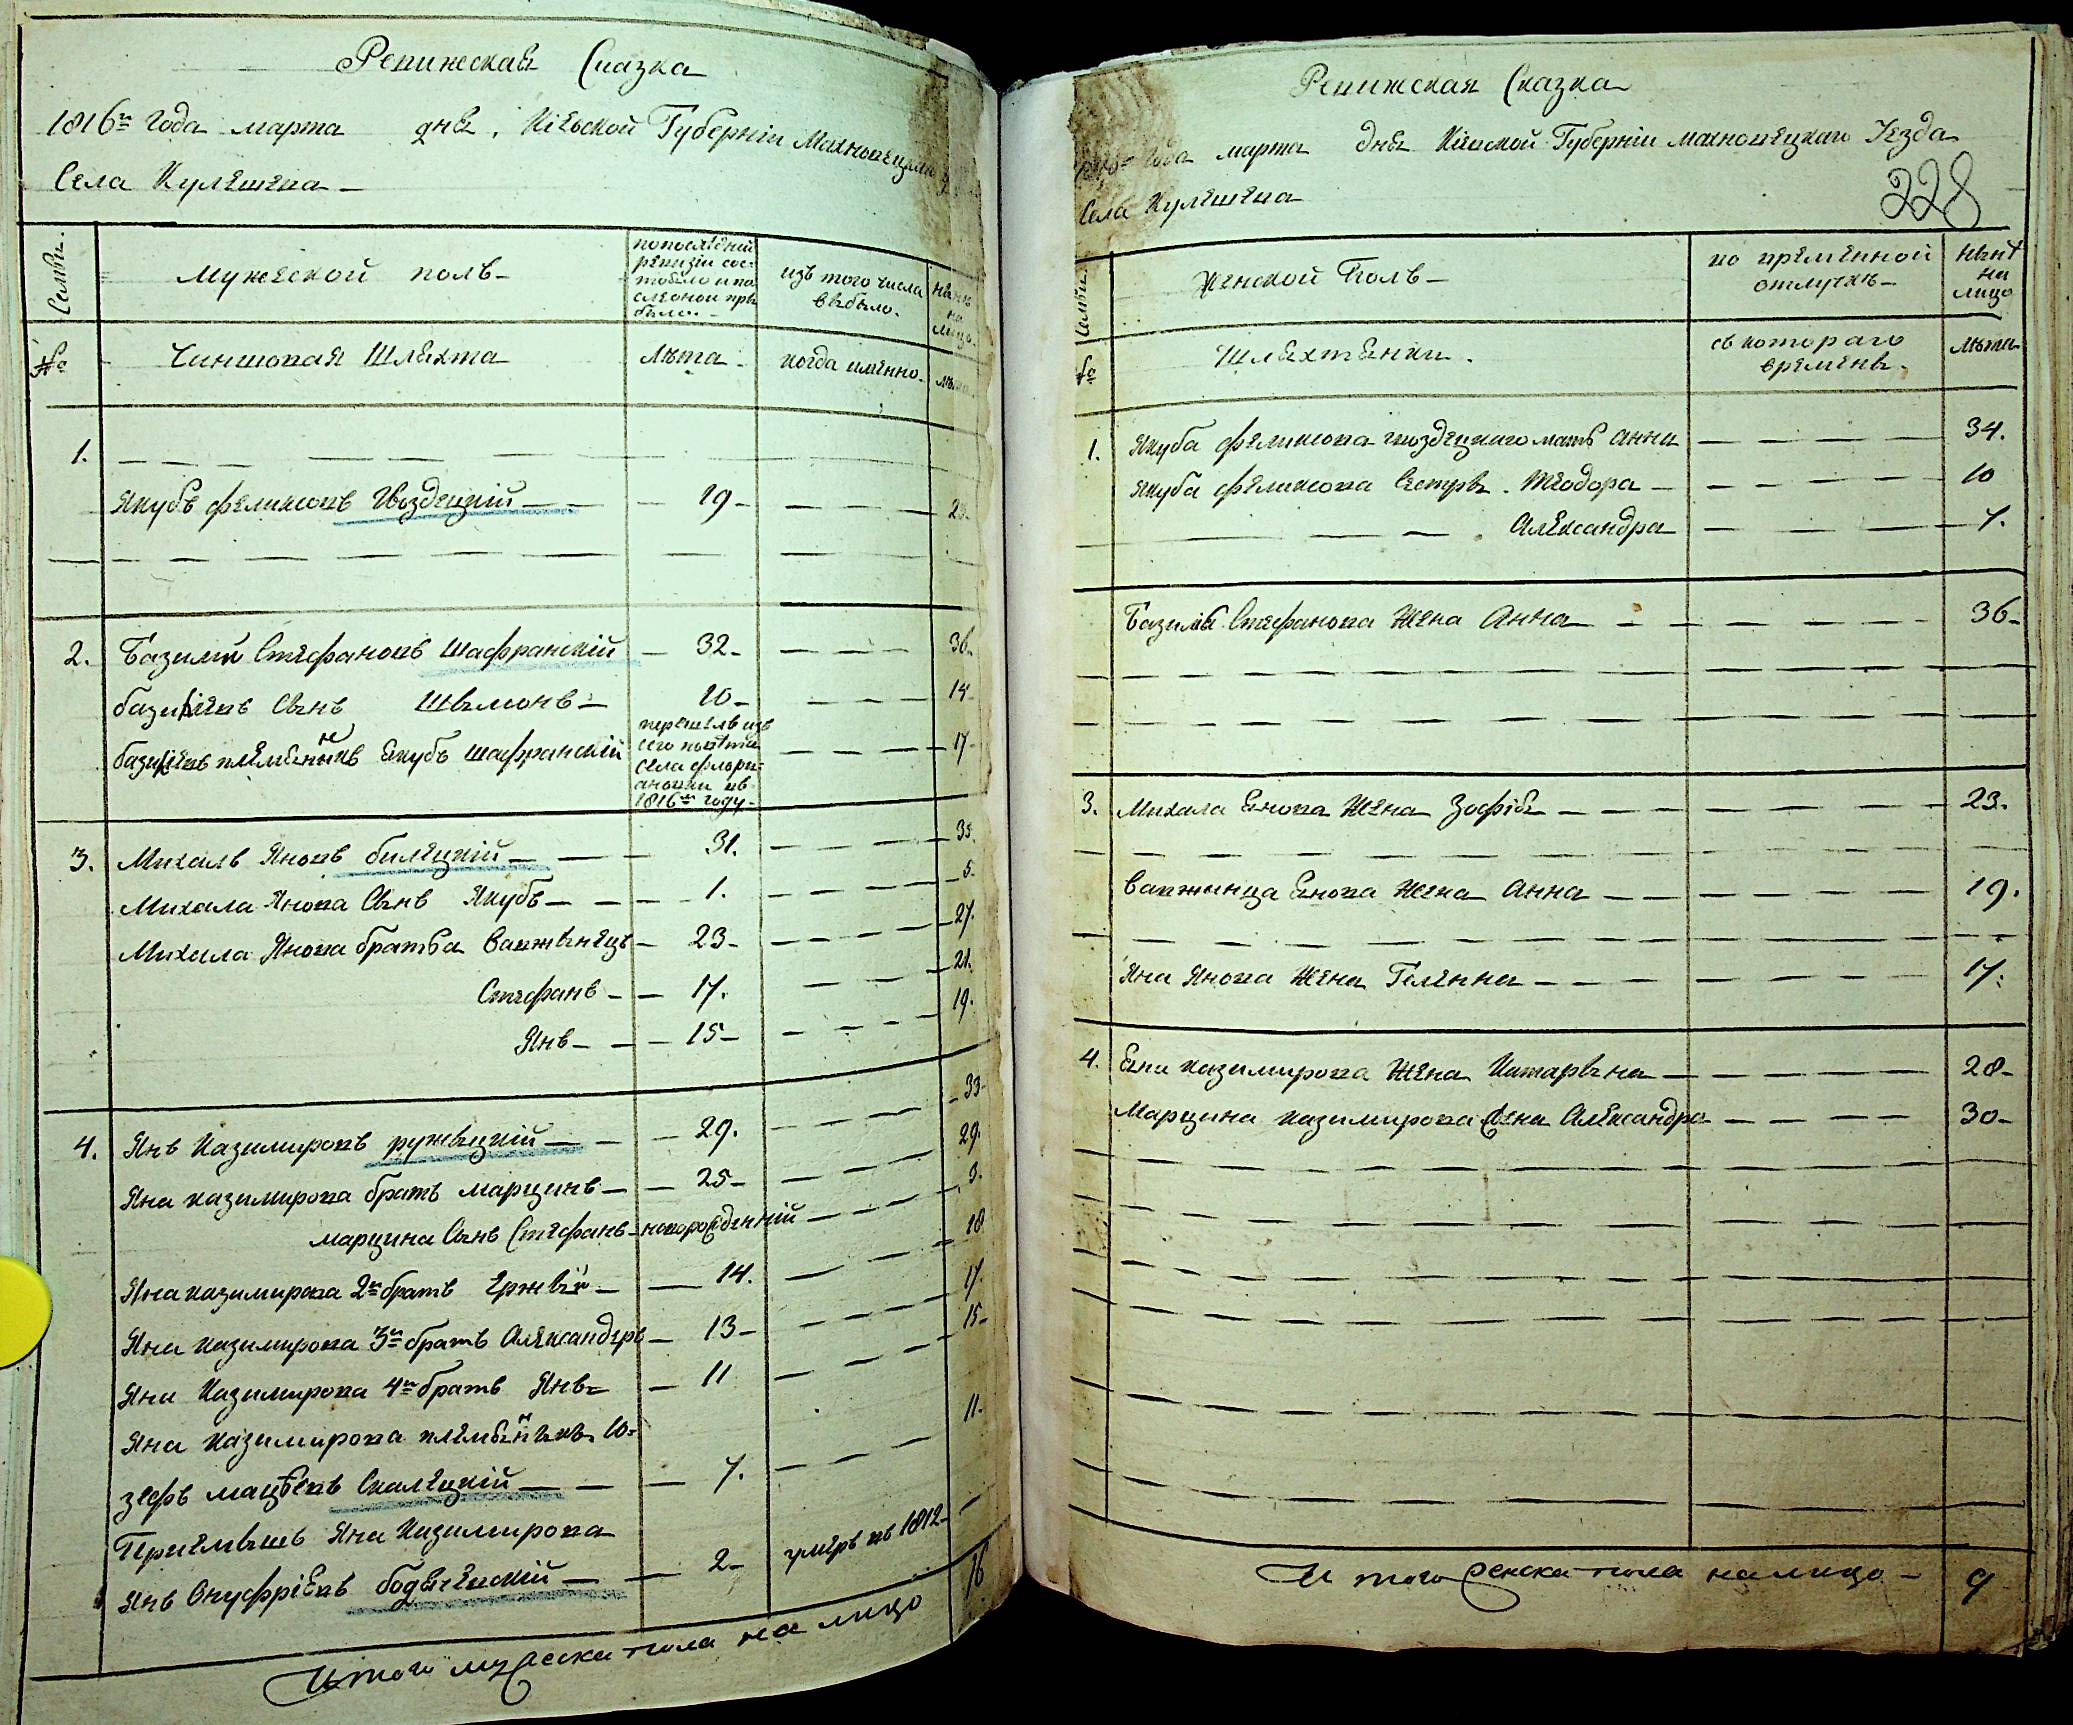 Ревижская Сказка
1816го Года марта дня, Кіевской Губерніи Махновецкаго
Села Кулешева
Семьи.
Мужеской полъ
попоследней ревизіи состояло и после оной прибыло.
изъ того числа выбыло.
ныне на лицо.
№
Чиншовая Шляхта
лѣта
когда именно
лѣта
1.
Якубъ феликсовъ Гвоздецкій 19
2.
Базилій Стефановъ Шафранскій 32 36
базиліевъ Сынъ Шымонъ 10 14
базиліевъ племенникъ Якубъ Шафранскій перешелъ изъ сего повѣта села флоріановки въ 1816мъ году 17
3.
Михалъ Яновъ билецкій 31. 35.
Михала Янова Сынъ Якубъ 1. 5.
Михала Янова братья Вавжынецъ 23 27.
Стефанъ 17. 21.
Янъ 15 19.
4.
Янъ Казимировъ ружыцкій 29. 33
Яна казимирова братъ марцинъ 25 29.
марцина Сынъ Стефанъ новорожденній 3.
Яна казимирова 2й братъ Ержій 14. 18
Яна казимирова 3й братъ Александръ 13 17.
Яна Казимирова 4й братъ Янъ 11 15
Яна Казимирова племенникъ Ю=
зефъ мацѣевъ Скалецкій 7. 11.
Пріемышъ Яна Казимирова
Янъ Онуфріевъ 2 умеръ въ 1812
Итого мужеска пола на лицо 16
Ревижская Сказка
Года марта дня Кіевской Губерніи махновецкаго Уезда
Села Кулешева
228
Семьи.
Женской Полъ
во временной отлучкѣ
нынѣ на лицо
№
Шляхтенки.
съ котораго времены.
лѣта
1.
Якуба феликсова гвоздецкаго мать анна 34.
Якуба феликсова Сестры. Теодора 10
Александра 7.
Базилія Стефанова Жена Анна 36
3.
Михала Енова Жена Зофія 23.
Вавжинца Енова Жена Анна 19.
Яна Янова Жена Геленна 17.
4.
Яна казимирова Жена Катарына 28
Марцина казимирова жена Александра 30
Итого женска пола налицо 9